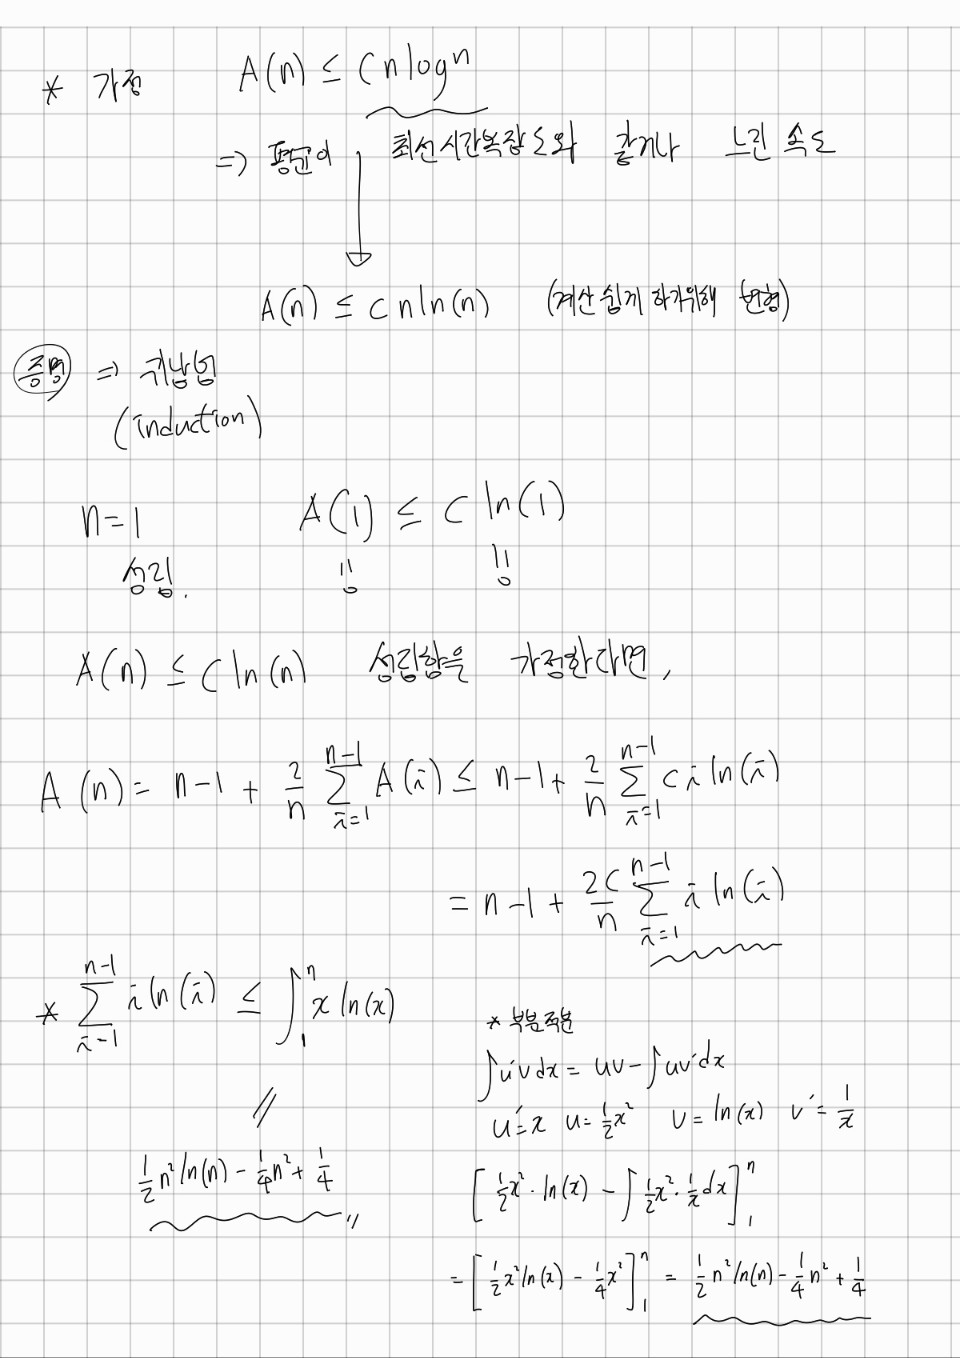 * 가정 A(n) ≤ Cnlogn
=> 평균이 최선시간복잡도와 같거나 느린 속도
A(n) ≤ cnln(n) (계산 쉽게 하기위해 변형)
증명 => 귀납법
(induction)
n=1 A(1) ≤ C ln(1)
성립. 0 0
A(n) ≤ C ln(n) 성립함을 가정한다면,
A(n) = n-1 + 2/n ∑_{i=1}^{n-1} A(i) ≤ n-1 + 2/n ∑_{i=1}^{n-1} ci ln(i)
= n-1 + 2C/n ∑_{i=1}^{n-1} i ln(i)
* ∑_{i=1}^{n-1} i ln(i) ≤ ∫_1^n x ln(x)
//
1/2 n² ln(n) - 1/4 n² + 1/4 〃
* 부분적분
∫u'v dx = uv - ∫uv' dx
u'=x u=1/2 x² v=ln(x) v'=1/x
[1/2 x² · ln(x) - ∫ 1/2 x² · 1/x dx]_1^n
= [1/2 x² ln(x) - 1/4 x²]_1^n = 1/2 n² ln(n) - 1/4 n² + 1/4